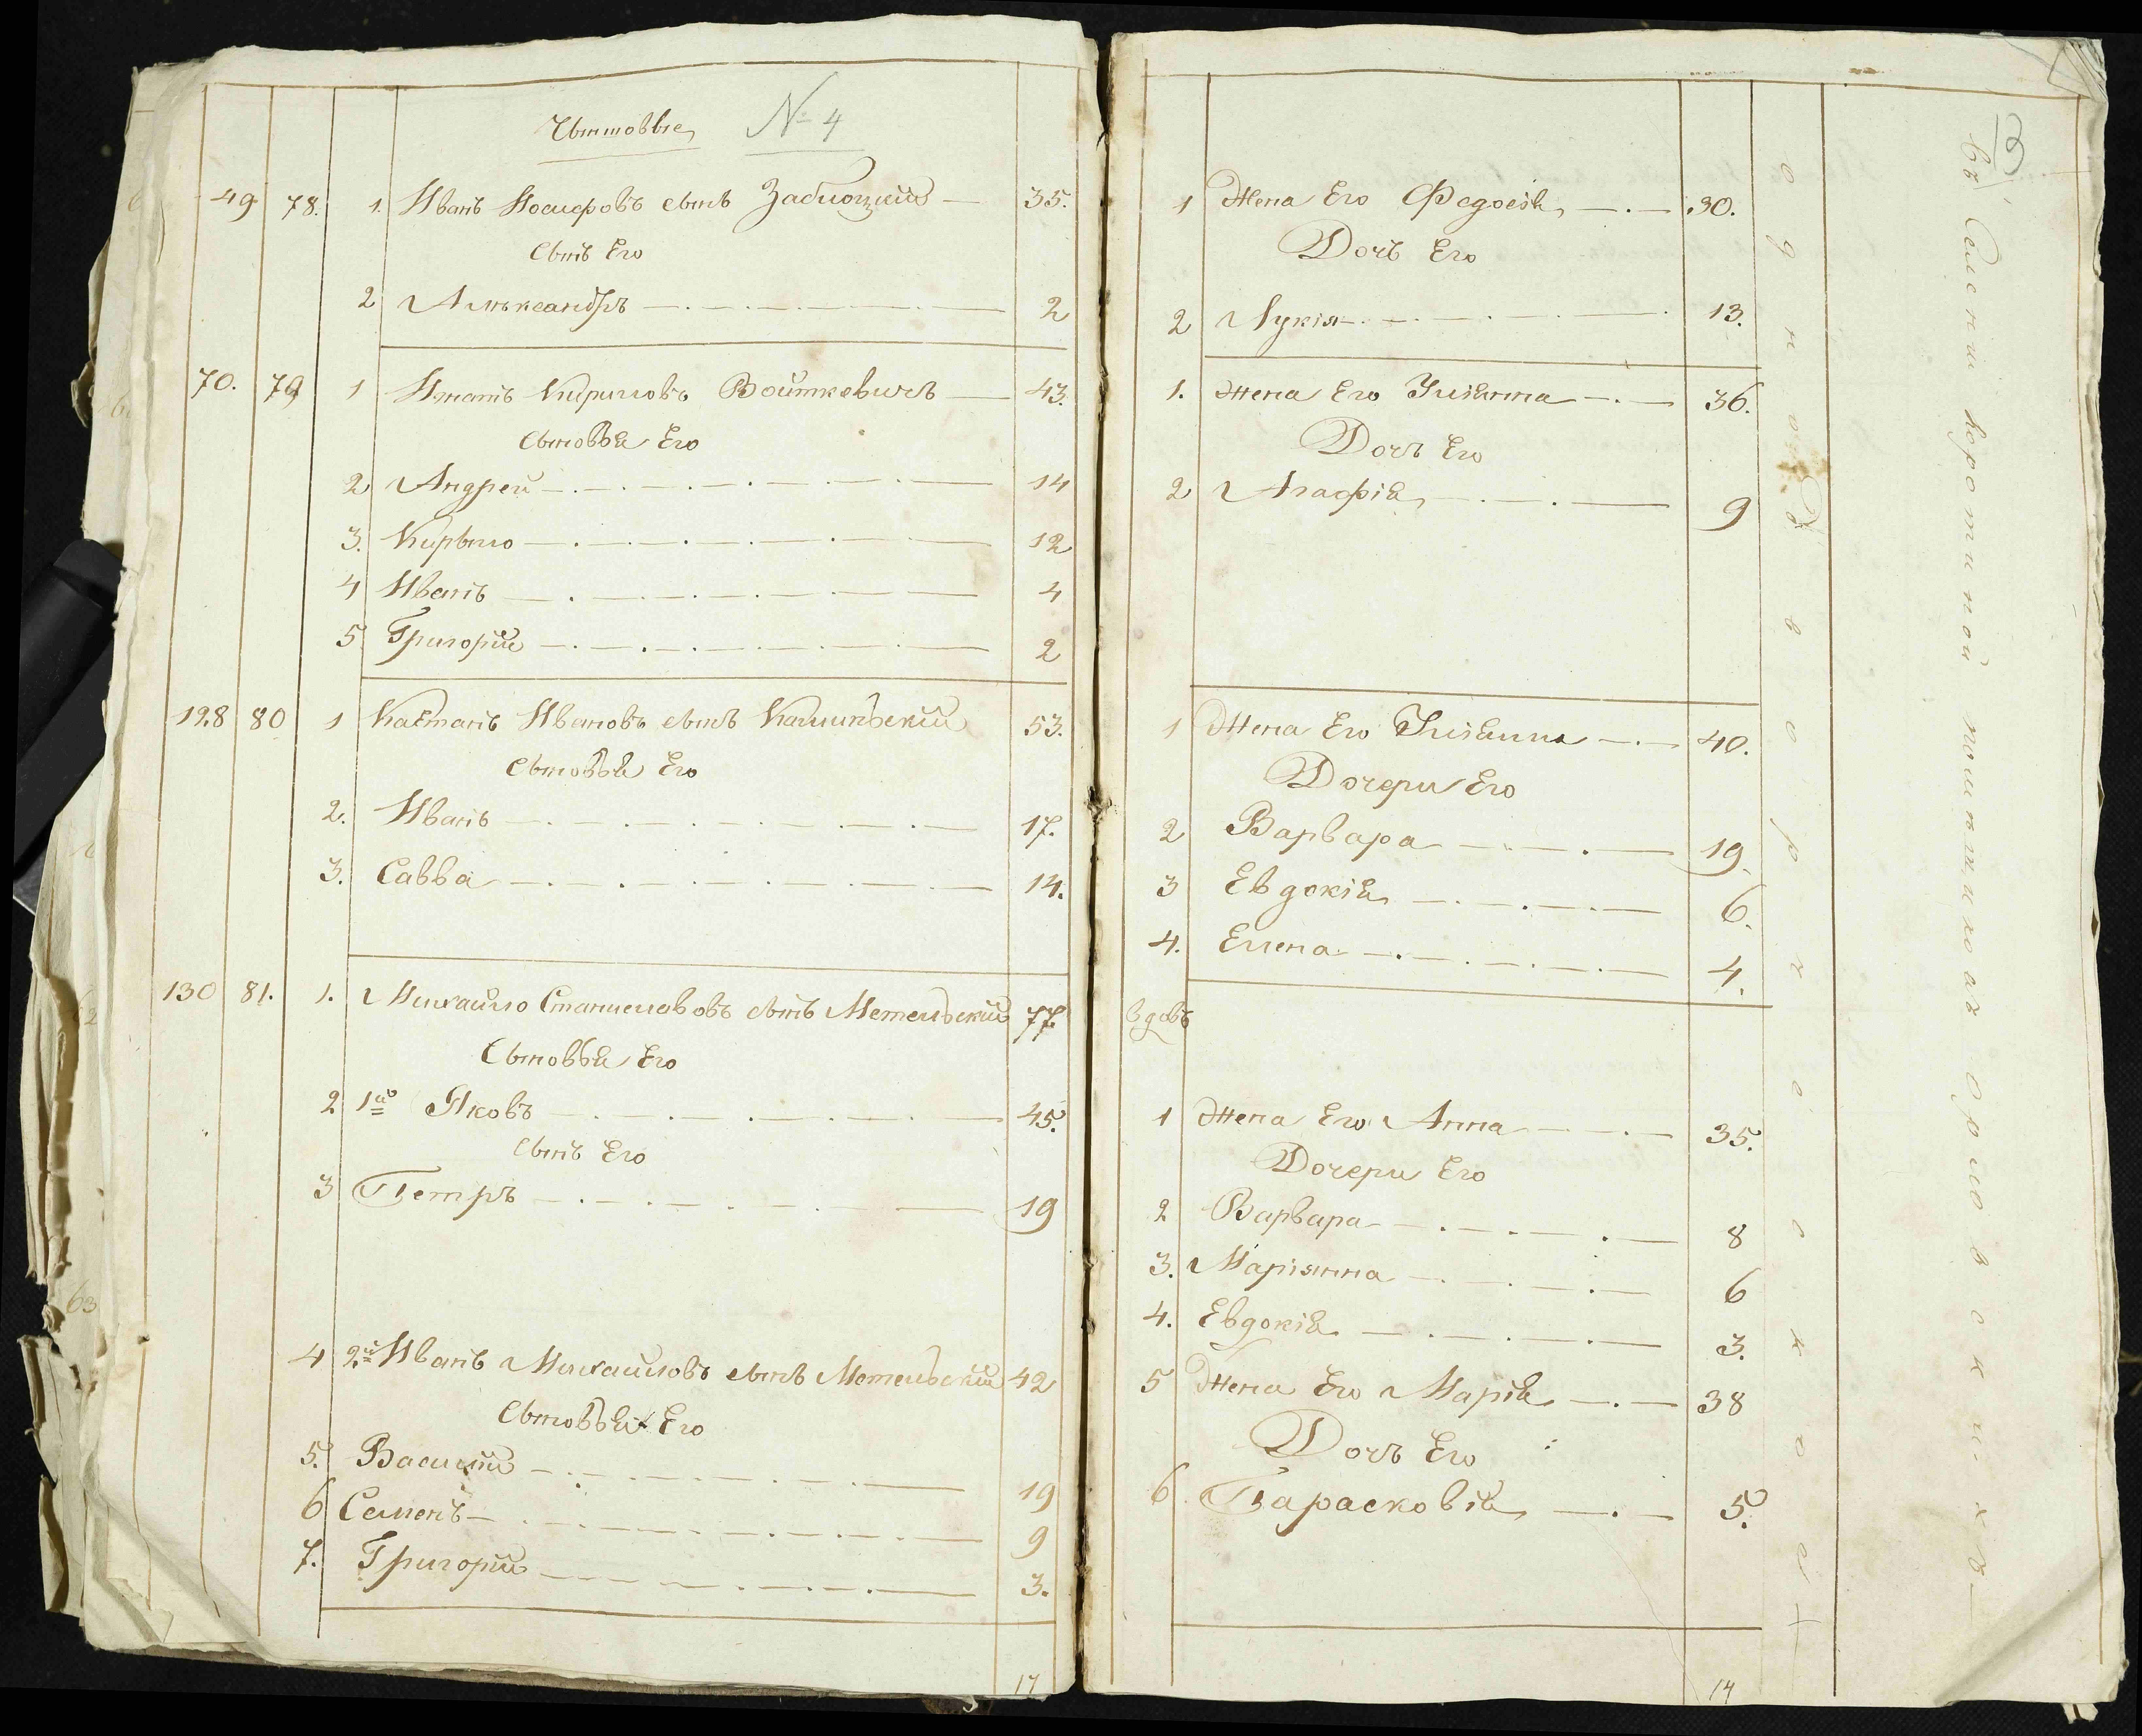 Чыншовые № 4
49 78. 1. Иванъ Иосифовъ сынъ Заблоцкий — 35.
сынъ Его
2 Альександръ 2
70. 79 1 Игнатъ Кириловъ Войткевичъ 43.
сыновья Его
2 Андрей 14
3. Кирыло 12
4 Иванъ 4
5 Григорий 2
128 80 1 Каетанъ Ивановъ сынъ Калиновский 53.
сыновья Его
2. Иванъ 17.
3. Савва 14.
130 81. 1. Михайло Станиславовъ сынъ Метельский 77
Сыновья Его
2 1й Яковъ 45.
сынъ Его
3 Петръ 19
4 2й Иванъ Михайловъ сынъ Метельский 42
Сыновья Его
5. Василий 19
6 Семенъ 9
7. Григорий 3.
17
13
1 Жена Его Федосія 30.
Дочь Его
2 Лукія 13.
1. Жена Его Юліянна 36.
Дочь Его
2 Агафія 9
1 Жена Его Юліянна 40.
Дочери Его
2 Варвара 19.
3 Евдокія 6.
4. Елена 4.
вдовъ
1 Жена Его Анна 35.
Дочери Его
2 Варвара 8
3. Маріянна 6
4. Евдокія 3.
5 Жена Его Марія 38
Дочь Его
6 Парасковія 5.
14
однодворческой
въ Сельский коротиной